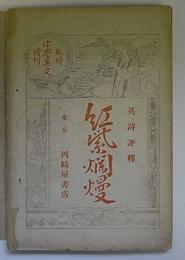 臨時
増刊
中學英文
英詩評釋
紅紫爛熳
東京
岡崎屋書店